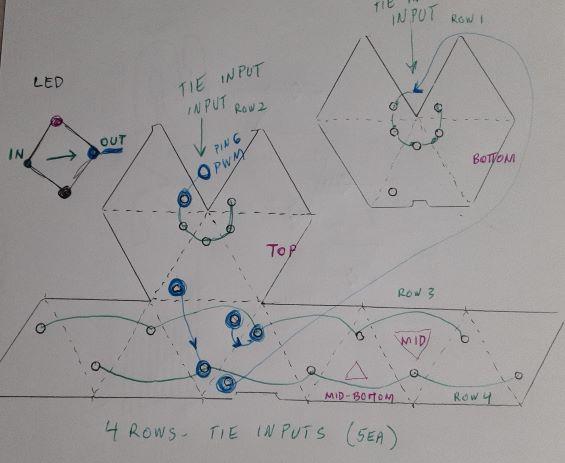 TIE IN
INPUT ROW 1
LED
TIE INPUT
INPUT ROW2
IN
OUT
PIN 6
PWM
BOTTOM
TOP
ROW 3
MID
MID-BOTTOM
ROW 4
4 ROWS- TIE INPUTS (5EA)